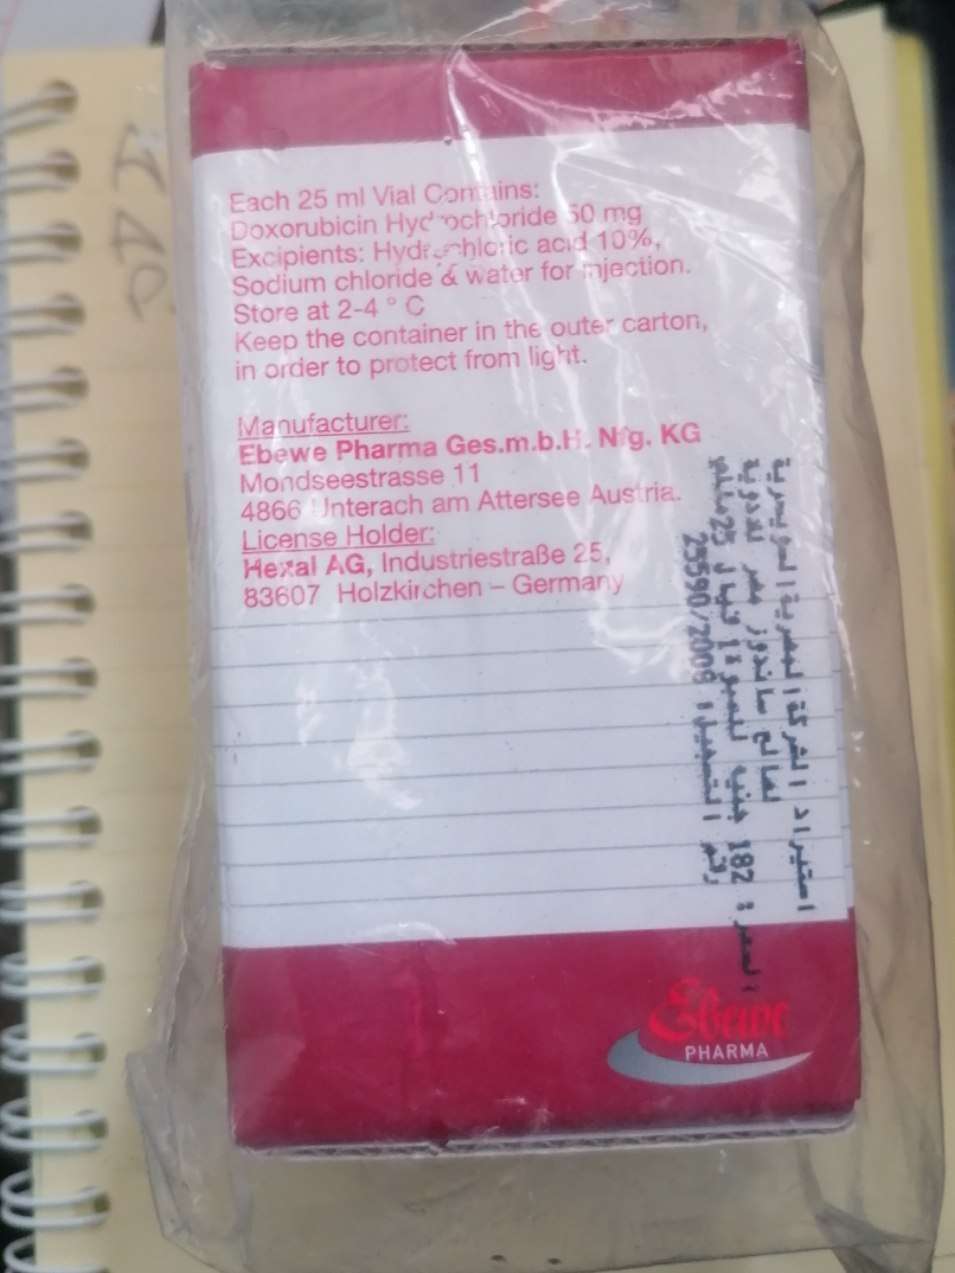 Each 25 ml Vial Contains:
Doxorubicin Hydrochloride 50 mg
Excipients: Hydrochloric acid 10%,
Sodium chloride & water for injection.
Store at 2-4 ° C
Keep the container in the outer carton,
in order to protect from light.
Manufacturer:
Ebewe Pharma Ges.m.b.H. Nfg. KG
Mondseestrasse 11
4866 Unterach am Attersee Austria.
License Holder:
Hexal AG, Industriestraße 25,
83607 Holzkirchen – Germany
استيراد الشركة المصرية السويسرية
لصالح ساندوز مصر للادوية
السعر : 182 جنيه للعبوة 25
رقم التسجيل : 25590/2008
Ebewe
PHARMA